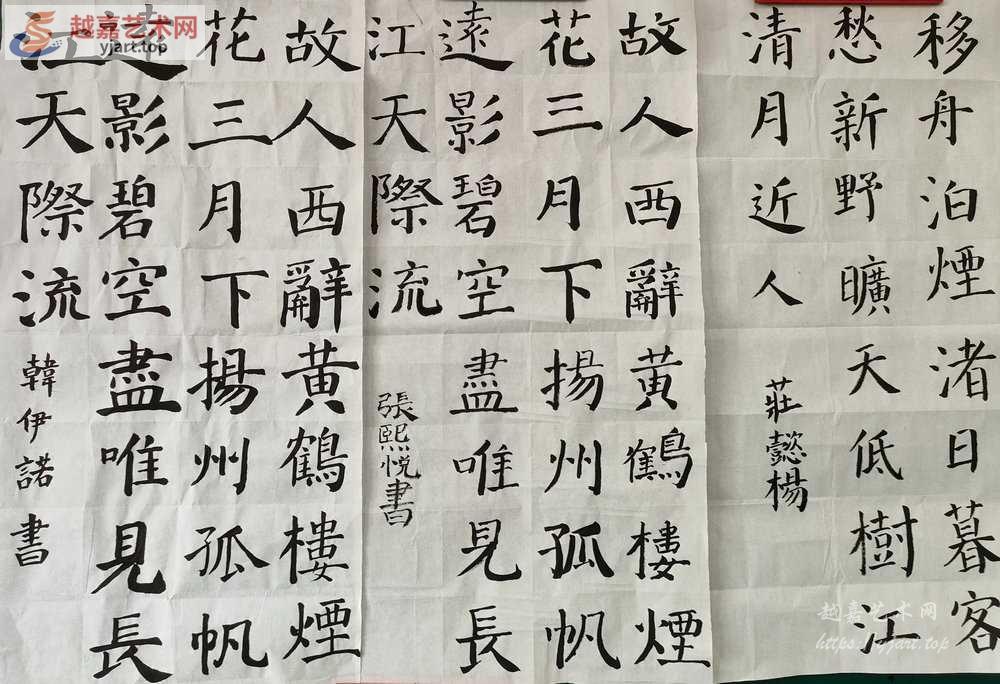 移舟泊煙渚日暮客
愁新野曠天低樹江
清月近人
莊懿楊
故人西辭黃鶴樓煙
花三月下揚州孤帆
遠影碧空盡唯見長
江天際流
張熙悅書
故人西辭黃鶴樓煙
花三月下揚州孤帆
遠影碧空盡唯見長
江天際流
韓伊諾書
越嘉艺术网
yjart.top
越嘉艺术网
https://yjart.top